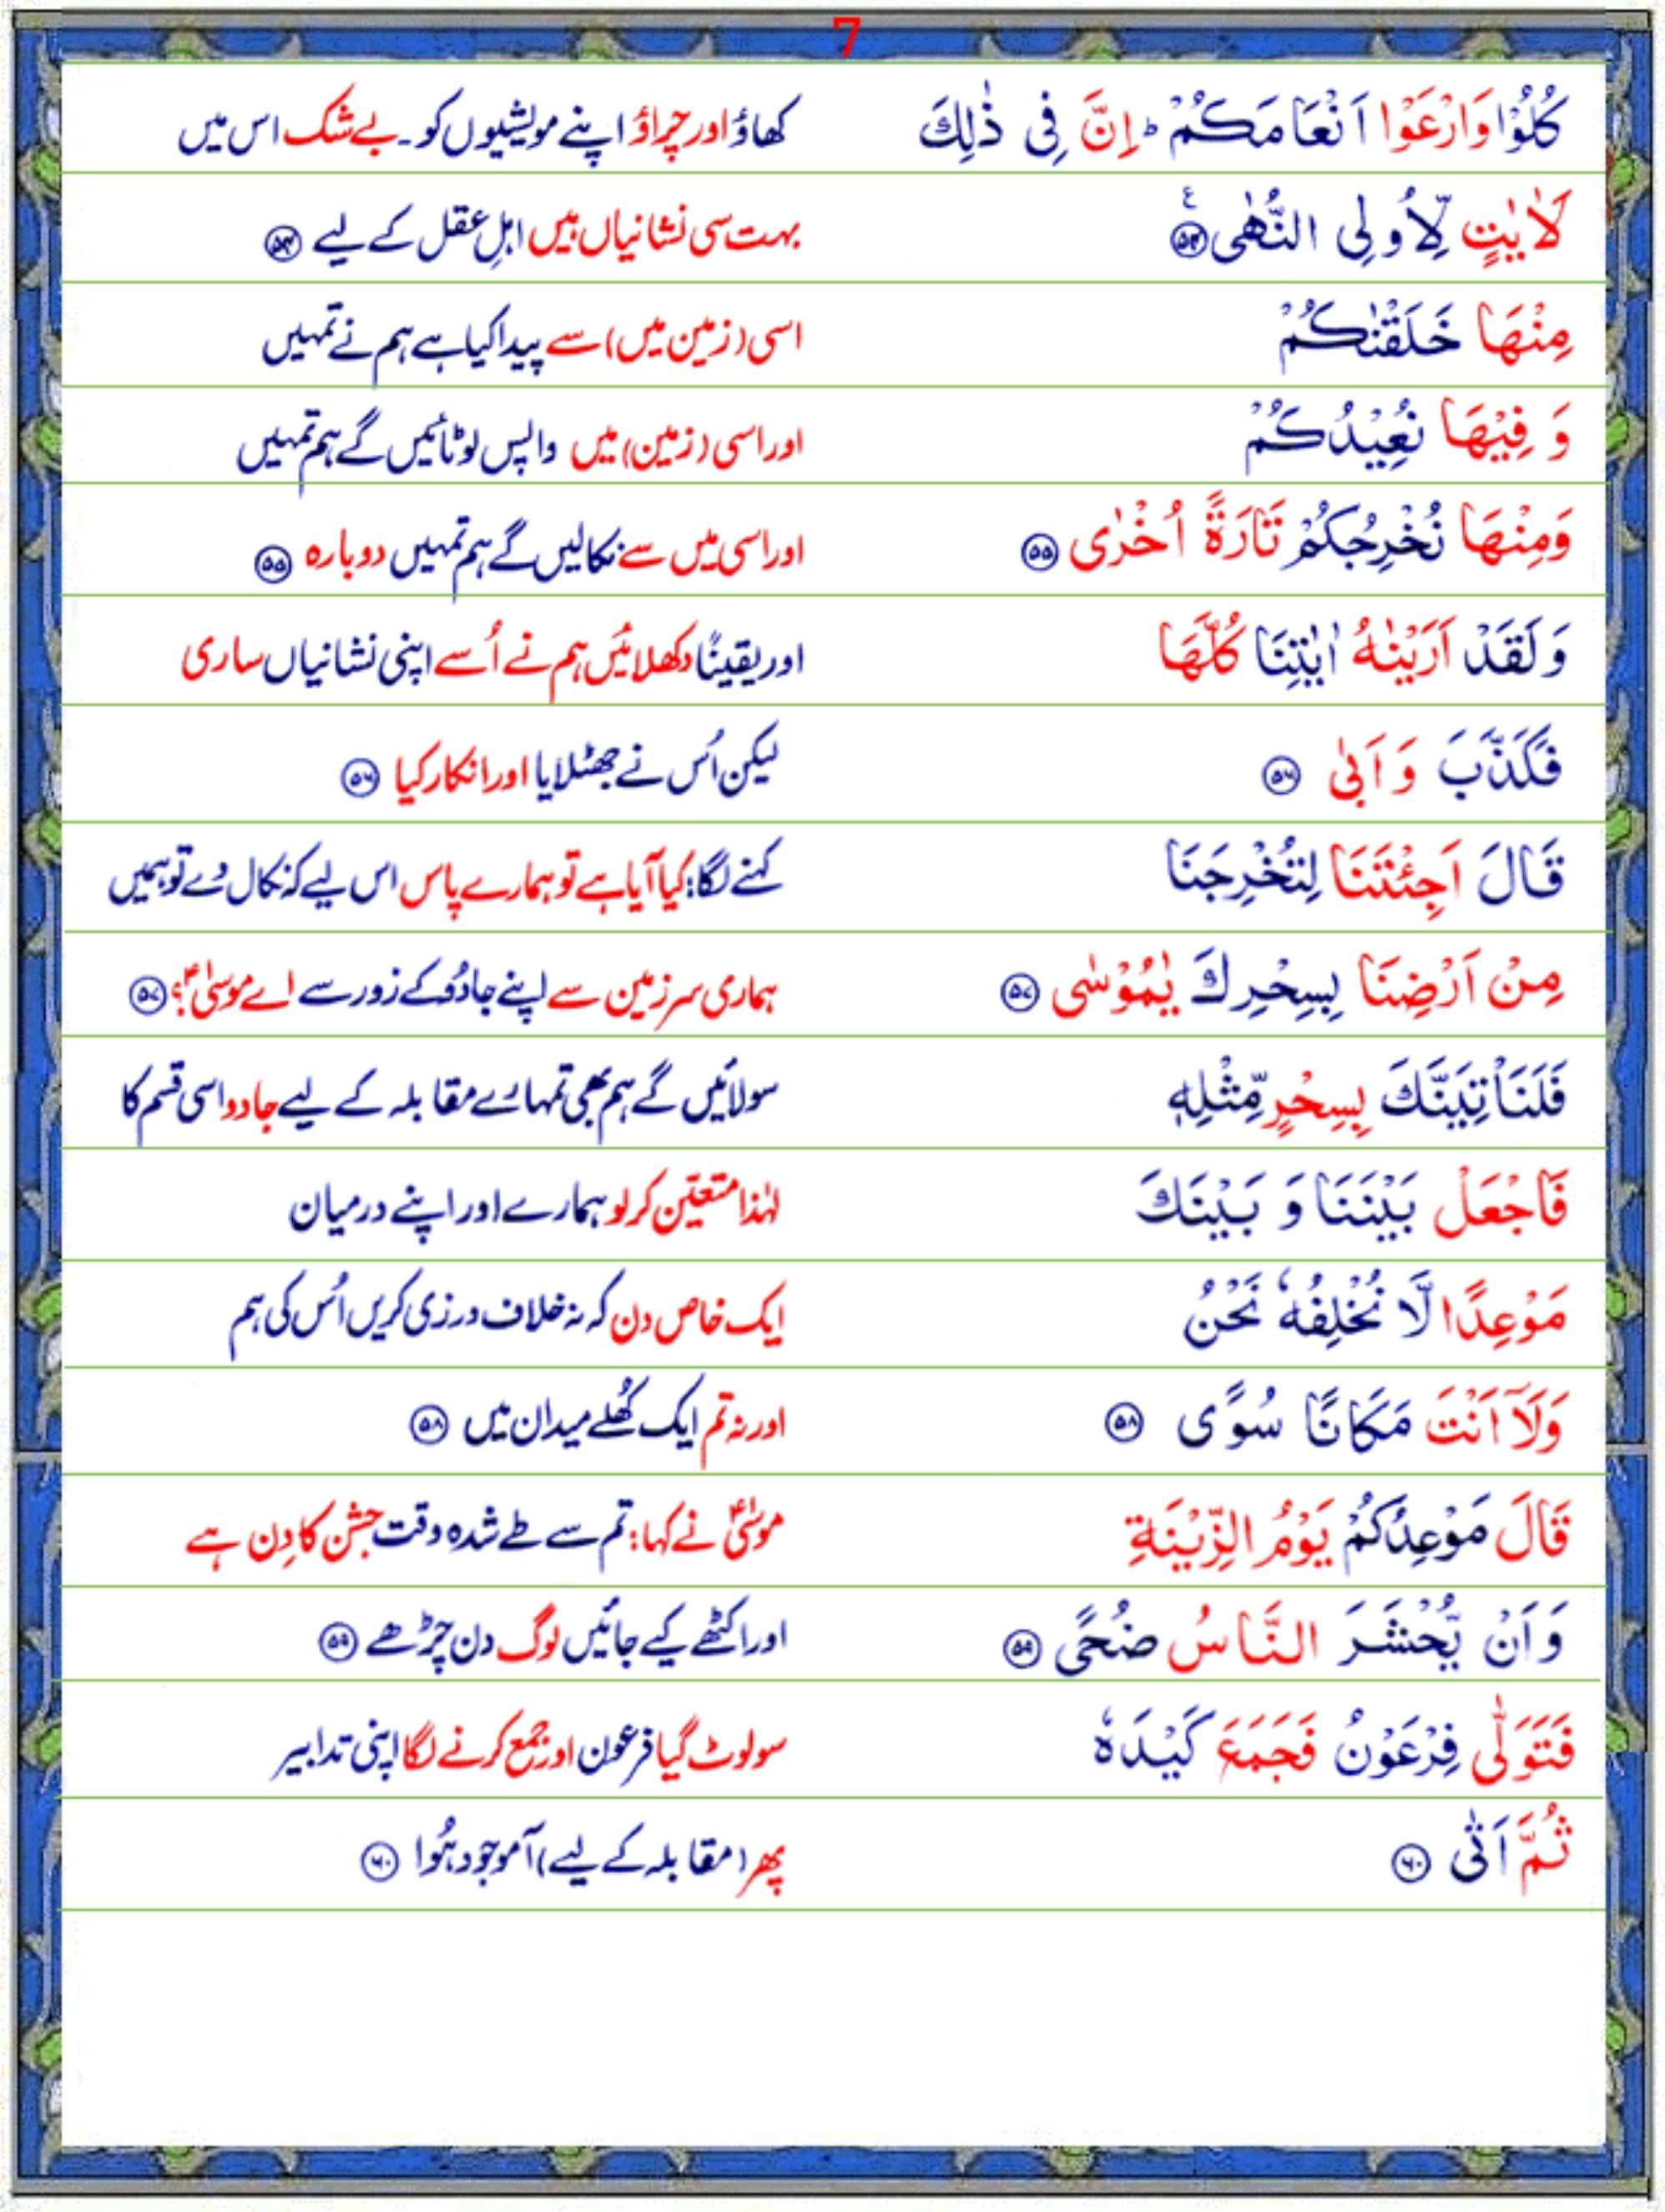 7
كُلُوْا وَارْعَوْا اَنْعَامَكُمْ ؕ اِنَّ فِیْ ذٰلِكَ کھاؤ اور چراؤ اپنے مویشیوں کو۔ بے شک اس میں
لَاٰیٰتٍ لِّاُولِی النُّهٰی ۵۴ بہت سی نشانیاں ہیں اہلِ عقل کے لیے ۵۴
مِنْهَا خَلَقْنٰكُمْ اسی (زمین میں) سے پیدا کیا ہے ہم نے تمہیں
وَ فِیْهَا نُعِیْدُكُمْ اور اسی (زمین) میں واپس لوٹائیں گے ہم تمہیں
وَمِنْهَا نُخْرِجُكُمْ تَارَةً اُخْرٰی ۵۵ اور اسی میں سے نکالیں گے ہم تمہیں دوبارہ ۵۵
وَلَقَدْ اَرَیْنٰهُ اٰیٰتِنَا كُلَّهَا اور یقیناً دکھلائیں ہم نے اُسے اپنی نشانیاں ساری
فَكَذَّبَ وَ اَبٰی ۵۶ لیکن اُس نے جھٹلایا اور انکار کیا ۵۶
قَالَ اَجِئْتَنَا لِتُخْرِجَنَا کہنے لگا: کیا آیا ہے تو ہمارے پاس اس لیے کہ نکال دے تو ہمیں
مِنْ اَرْضِنَا بِسِحْرِكَ یٰمُوْسٰی ۵۷ ہماری سرزمین سے اپنے جادُو کے زور سے اے موسیٰؑ؟ ۵۷
فَلَنَاْتِیَنَّكَ بِسِحْرٍ مِّثْلِهٖ سو لائیں گے ہم بھی تمہارے مقابلہ کے لیے جادو اسی قسم کا
فَاجْعَلْ بَیْنَنَا وَ بَیْنَكَ لہٰذا متعیّن کر لو ہمارے اور اپنے درمیان
مَوْعِدًا لَّا نُخْلِفُهٗ نَحْنُ ایک خاص دن کہ نہ خلاف ورزی کریں اُس کی ہم
وَلَاۤ اَنْتَ مَكَانًا سُوًی ۵۸ اور نہ تم ایک کُھلے میدان میں ۵۸
قَالَ مَوْعِدُكُمْ یَوْمُ الزِّیْنَةِ موسیٰؑ نے کہا: تم سے طے شدہ وقت جشن کا دِن ہے
وَ اَنْ یُّحْشَرَ النَّاسُ ضُحًی ۵۹ اور اکٹھے کیے جائیں لوگ دن چڑھے ۵۹
فَتَوَلّٰی فِرْعَوْنُ فَجَمَعَ كَیْدَهٗ سو لوٹ گیا فرعون اور جمع کرنے لگا اپنی تدابیر
ثُمَّ اَتٰی ۶۰ پھر (مقابلہ کے لیے) آ موجود ہُوا ۶۰